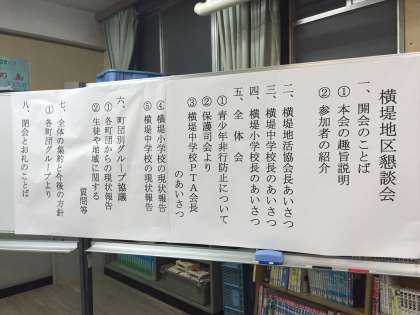 横堤地区懇談会
一、開会のことば
①本会の趣旨説明
②参加者の紹介
二、横堤地活協会長あいさつ
三、横堤中学校長のあいさつ
四、横堤小学校長のあいさつ
五、全体会
①青少年非行防止について
②保護司会より
③横堤中学校PTA会長
のあいさつ
④横堤小学校の現状報告
⑤横堤中学校の現状報告
六、町団別グループ協議
①各町団からの現状報告
②生徒や地域に関する
質問等
七、全体の集約と今後の方針
①各町団グループより
八、閉会とお礼のことば